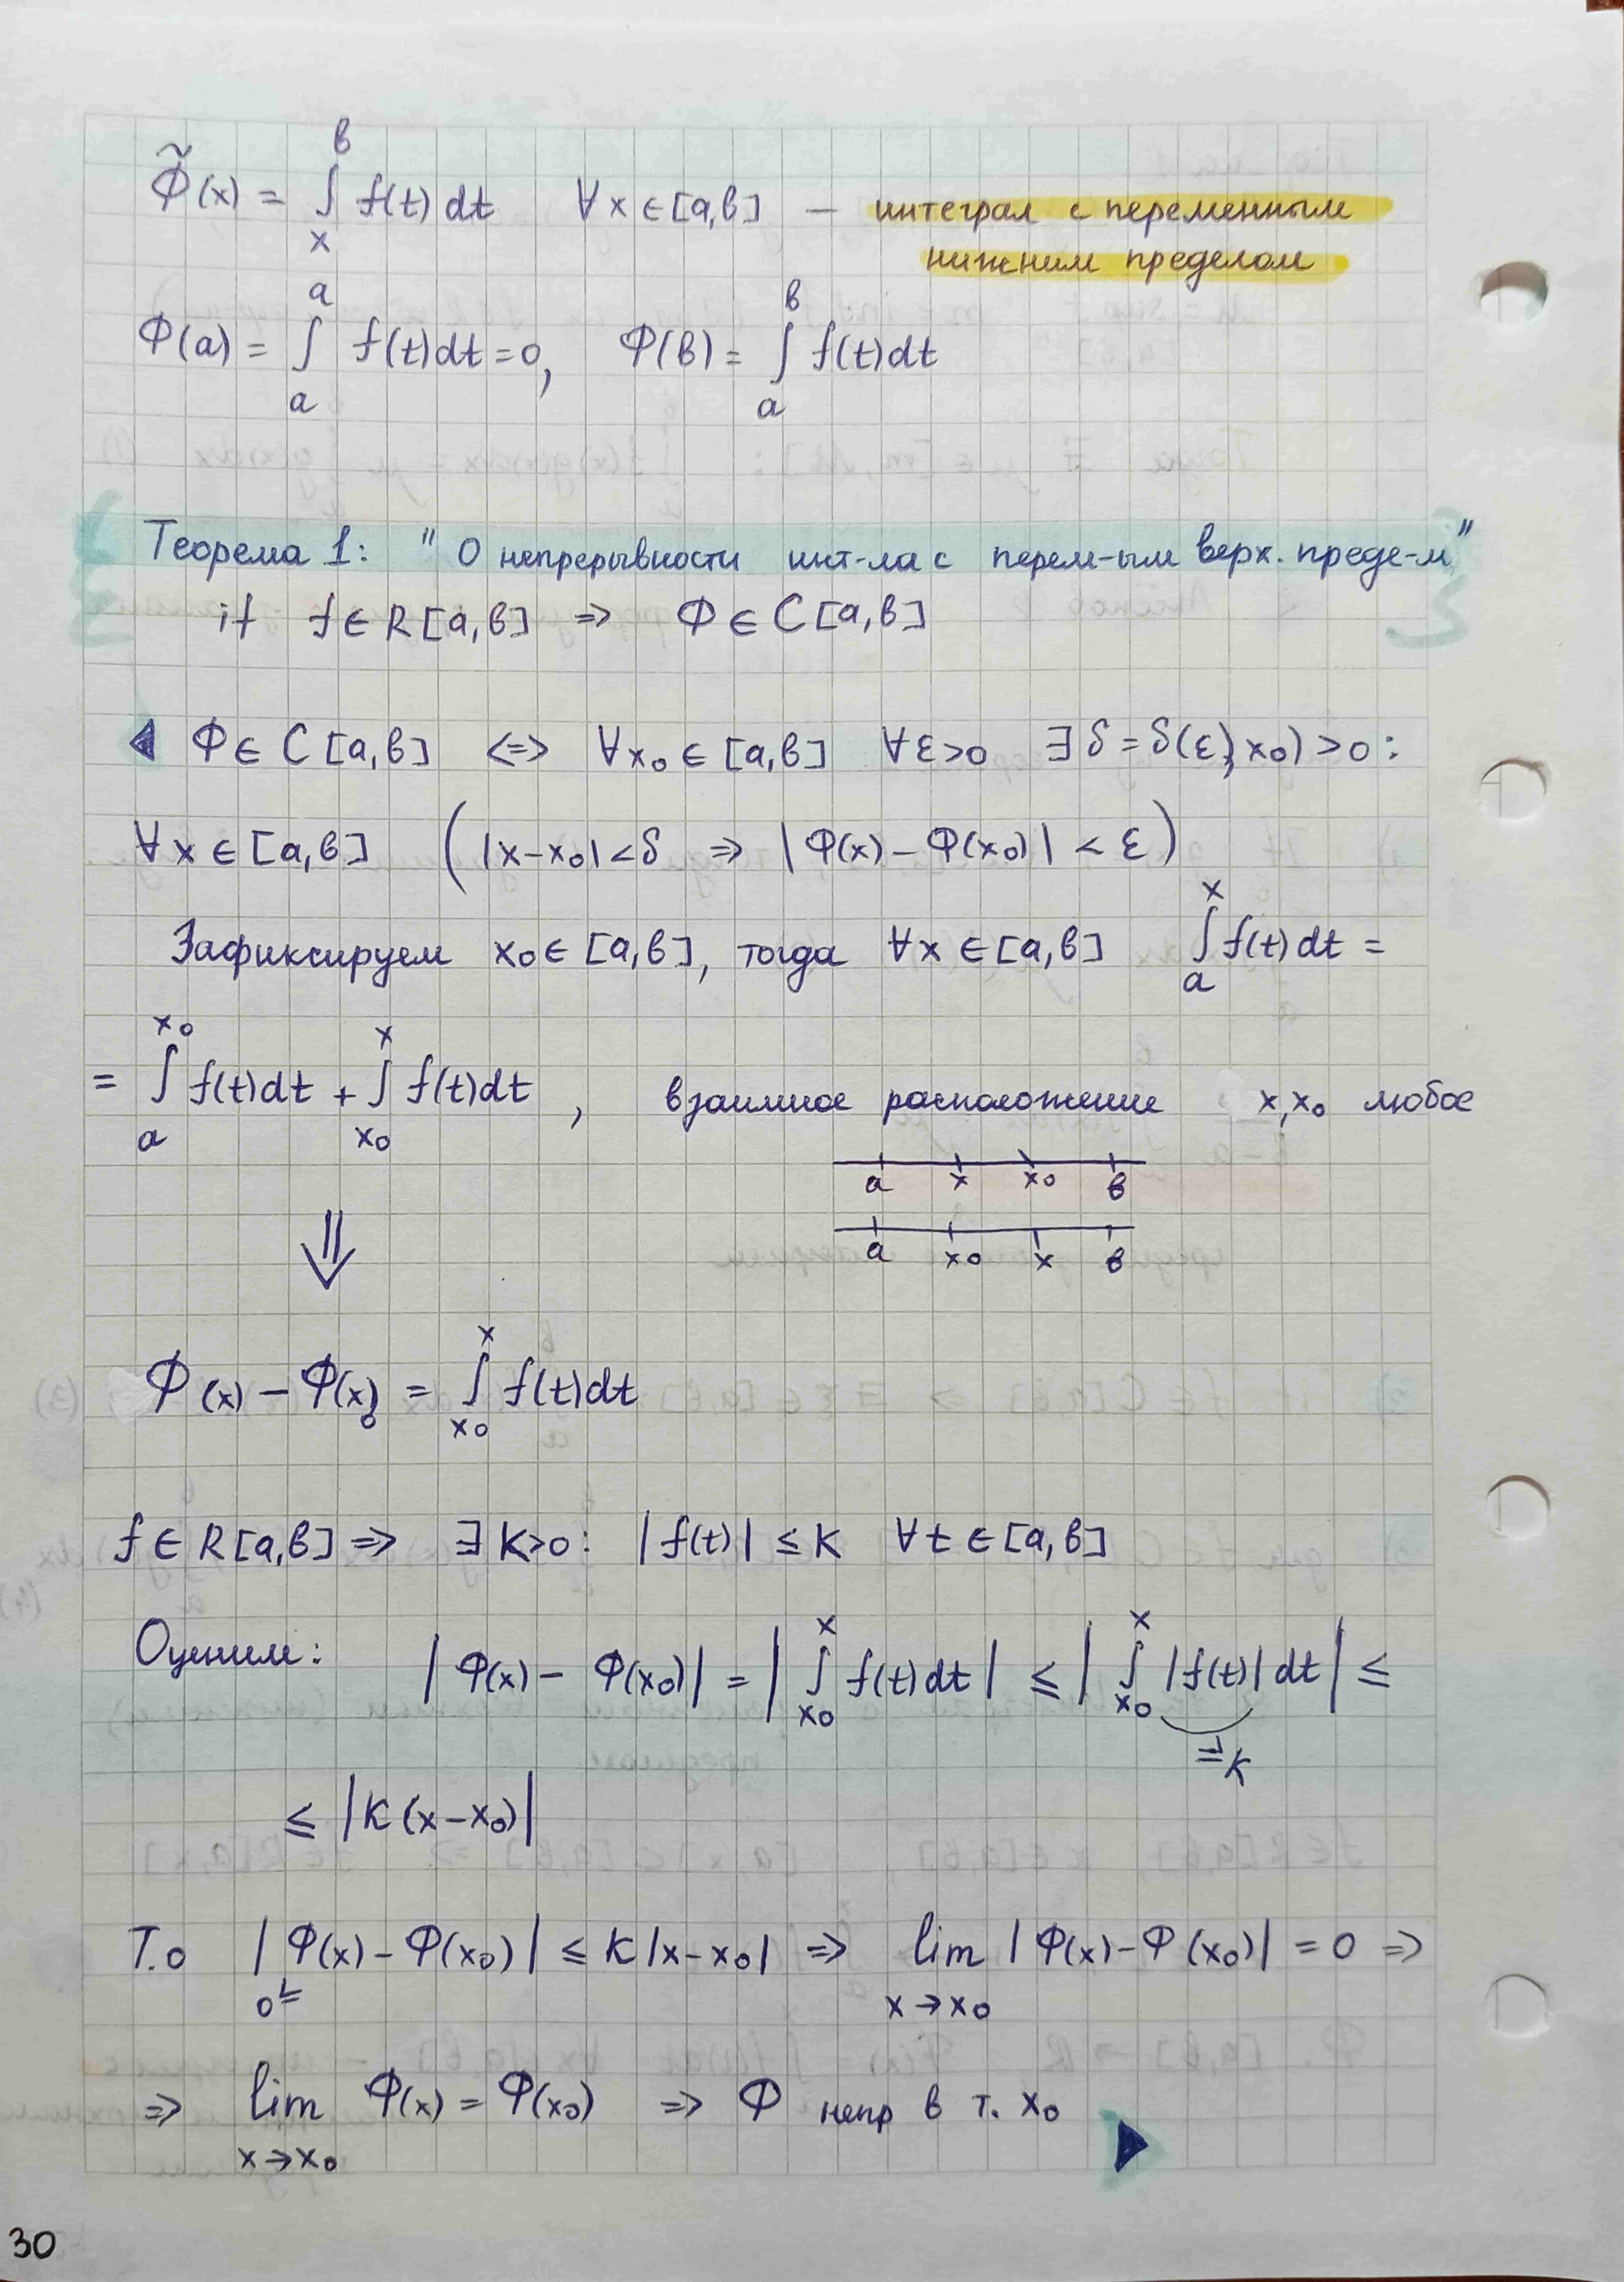 Φ̃(x) = ∫_x^b f(t) dt   ∀x ∈ [a,b] — интеграл с переменным
нижним пределом
Φ(a) = ∫_a^a f(t)dt = 0,   Φ(b) = ∫_a^b f(t)dt
Теорема 1: "О непрерывности инт-ла с перем-ым верх. преде-м"
if f ∈ R[a,b] ⇒ Φ ∈ C[a,b]
◀ Φ ∈ C[a,b] <=> ∀x₀ ∈ [a,b] ∀ε>0 ∃δ = δ(ε, x₀) > 0:
∀x ∈ [a,b] (|x-x₀| < δ ⇒ |Φ(x) - Φ(x₀)| < ε)
Зафиксируем x₀ ∈ [a,b], тогда ∀x ∈ [a,b] ∫_a^x f(t)dt =
= ∫_a^{x₀} f(t)dt + ∫_{x₀}^x f(t)dt, взаимное расположение x, x₀ любое
a x x₀ b
a x₀ x b
⇓
Φ(x) - Φ(x₀) = ∫_{x₀}^x f(t)dt
f ∈ R[a,b] ⇒ ∃K>0: |f(t)| ≤ K ∀t ∈ [a,b]
Оценим: |Φ(x) - Φ(x₀)| = |∫_{x₀}^x f(t)dt| ≤ |∫_{x₀}^x |f(t)|dt| ≤
≤ K
≤ |K(x-x₀)|
Т.о |Φ(x) - Φ(x₀)| ≤ K|x-x₀| ⇒ lim_{x→x₀} |Φ(x) - Φ(x₀)| = 0 ⇒
0 ≤
⇒ lim_{x→x₀} Φ(x) = Φ(x₀) ⇒ Φ непр в т. x₀ ▶
30